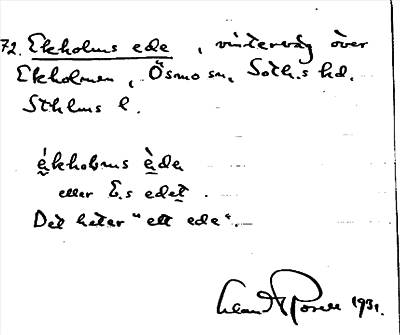 72. Ekholms ede, vinterväg över
Ekholmen, Ösmo sn, Soth.s hd.
Sthlms l.
ékholms èda
eller E.s edet.
Det heter "ett ede".
1931.